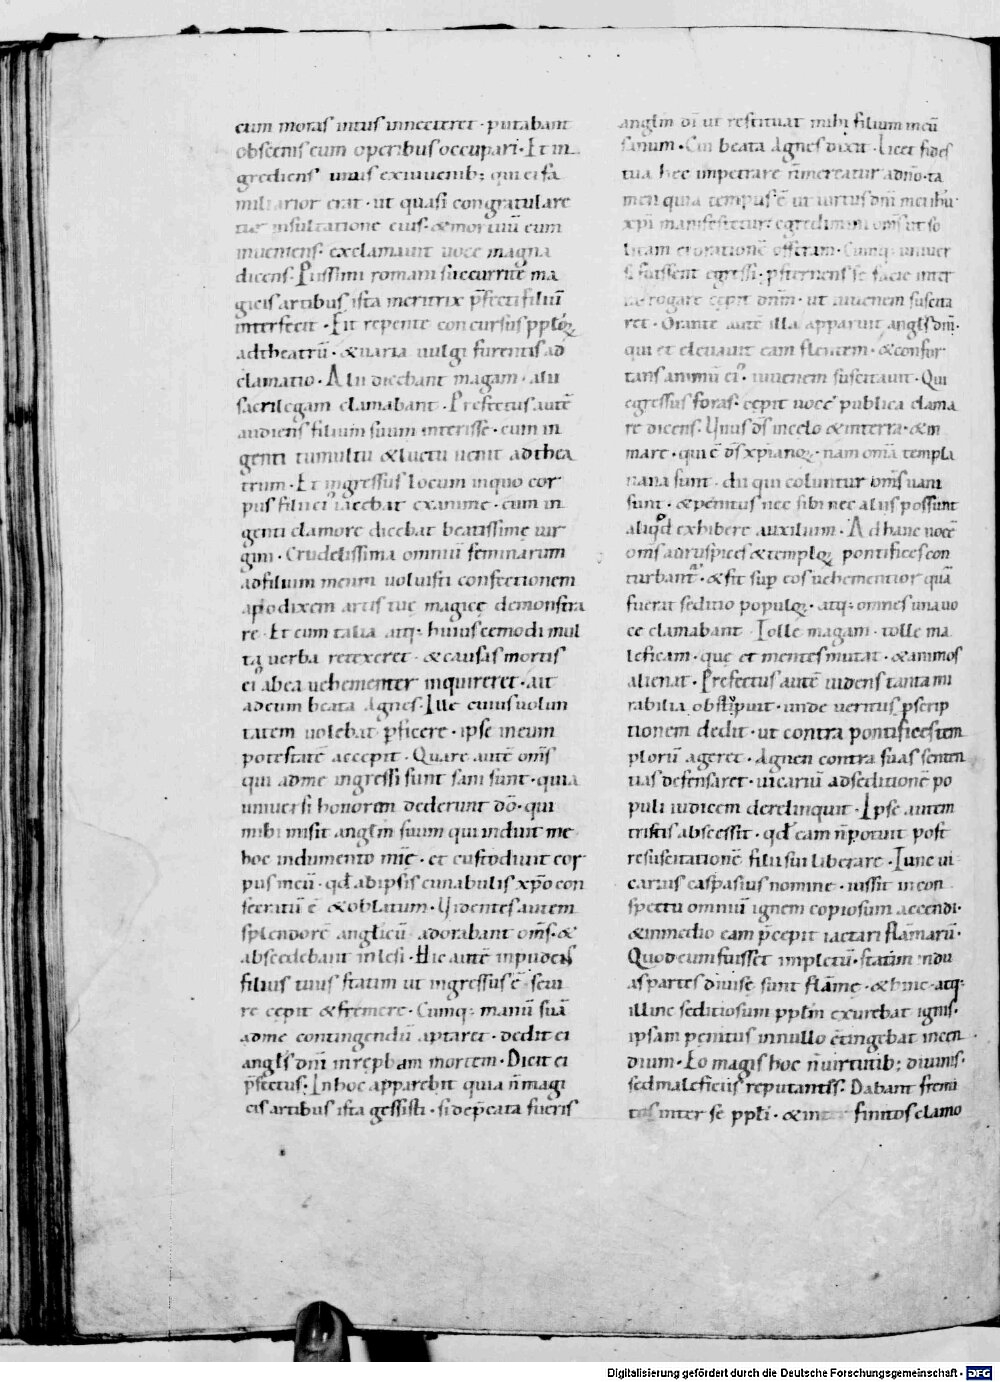 cum moras intus innecteret · putabant
obscenis eum operibus occupari · Et in
grediens unus ex iuuenib; qui ei fa
miliarior erat · ut quasi congratulare
tur insultatione eius · & mortuū eum
inueniens · exclamauit uoce magna
dicens · Piissimi romani succurrite · ma
gicis artibus ista meretrix p̄fecti filiū
interfecit · Fit repente concursus pplōꝝ
ad theatrū · & uaria uulgi furentis ad
clamatio · Alii dicebant magam · alii
sacrilegam clamabant · Prefectus autē
audiens filium suum interisse · cum in
genti tumultu & luctu uenit ad thea
trum · Et ingressus locum in quo cor
pus filii ei᾽ iacebat exanime · cum in
genti clamore dicebat beatissime uir
gini · Crudelissima omniū feminarum
ad filium meum uoluisti confectionem
apodixem artis tuę magicę demonstra
re · Et cum talia atq; huiuscemodi mul
ta uerba retexeret · & causas mortis
ei᾽ ab ea uehementer inquireret · ait
ad eum beata Agnes · Ille cuius uolun
tatem uolebat p̄ficere · ipse in eum
potestatē accepit · Quare autē om̄s
qui ad me ingressi sunt sani sunt · quia
uniuersi honorem dederunt dō · qui
mihi misit anglm̄ suum qui induit me
hoc indumento mīe · et custodiuit cor
pus meū · qd̄ ab ipsis cunabulis xp̄o con
secratū ē & oblatum · Videntes autem
splendorē anglicū adorabant om̄s · &
abscedebant inlesi · Hic autē inpudens
filius tuus statim ut ingressus ē · seui
re cepit & fremere · Cumq; manū suā
ad me contingendū aptaret · dedit ei
angls̄ dn̄i in repbam mortem · Dicit ei
p̄fectus · In hoc apparebit quia n̄ magi
cis artibus ista gessisti · si dep̄cata fueris
anglm̄ dī ut restituat mihi filium meū
sanum · Cui beata Agnes dixit · Licet fides
tua hec impetrare n̄ mereatur a dn̄o · ta
men quia tempus ē ut uirtus dn̄i mei ihū
xp̄i manifestetur · egredimini om̄s ut so
litam ei orationē offeram · Cumq; uniuer
si fuissent egressi · p̄sternens se facie inter
ra rogare cępit dn̄m · ut iuuenem suscita
ret · Orante autē illa apparuit angls̄ dn̄i ·
qui et eleuauit eam flentem · & confor
tans animū ei᾽ · iuuenem suscitauit · Qui
egressus foras · cępit uoce publica clama
re dicens · Vnus ds̄ in celo & in terra · & in
mare · qui ē ds̄ xp̄ianoꝝ · nam om̄a templa
uana sunt · dii qui coluntur om̄s uani
sunt · & penitus nec sibi nec aliis possunt
aliqd̄ exhibere auxilium · Ad hanc uocē
om̄s aruspices & temploꝝ pontifices con
turbant᾽ · & fit sup̄ eos uehementior quā
fuerat seditio populoꝝ · atq; omnes una uo
ce clamabant · Tolle magam · tolle ma
leficam · quę et mentes mutat · & animos
alienat · Prefectus autē uidens tanta mi
rabilia obstipuit · unde ueritus p̄scrip
tionem dedit · ut contra pontifices tem
plorū ageret · Agnen contra suas senten
tias defensaret · uicariū ad seditionē po
puli iudicem derelinquit · Ipse autem
tristis abscessit · qd̄ eam n̄ potuit post
resuscitationē filii sui liberare · Tunc ui
carius caspasius nomine · iussit in con
spectu omniū ignem copiosum accendi ·
& in medio eam p̄cepit iactari flāmarū ·
Quod cum fuisset impletū · statim in du
as partes diuisę sunt flāmę · & hinc · atq;
illinc seditiosum pplm̄ exurebat ignis ·
ipsam penitus in nullo c̄tingebat incen
dium · Eo magis hoc n̄ uirtutib; diuinis ·
sed maleficiis reputantes · Dabant fremi
tus inter se ppl̄i · & finitos clamo
Digitalisierung gefördert durch die Deutsche Forschungsgemeinschaft - DFG